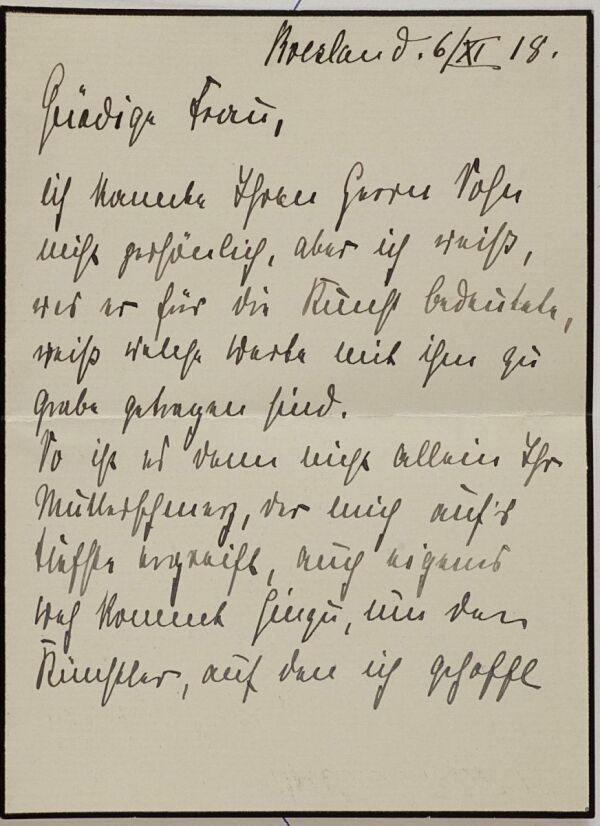 Kresland. 6/XI 18.
Gnädige Frau,
Ich kannte Ihren Herrn Sohn
nicht persönlich, aber ich weiß,
was er für die Kunst bedeutete,
weiß welche Werte mit ihm zu
Grabe getragen sind.
So ist es denn nicht allein Ihr
Mutterschmerz, der mich auf's
tiefste ergreift, auch eigenes
Weh kommt hinzu, um den
Künstler, auf den ich gehofft